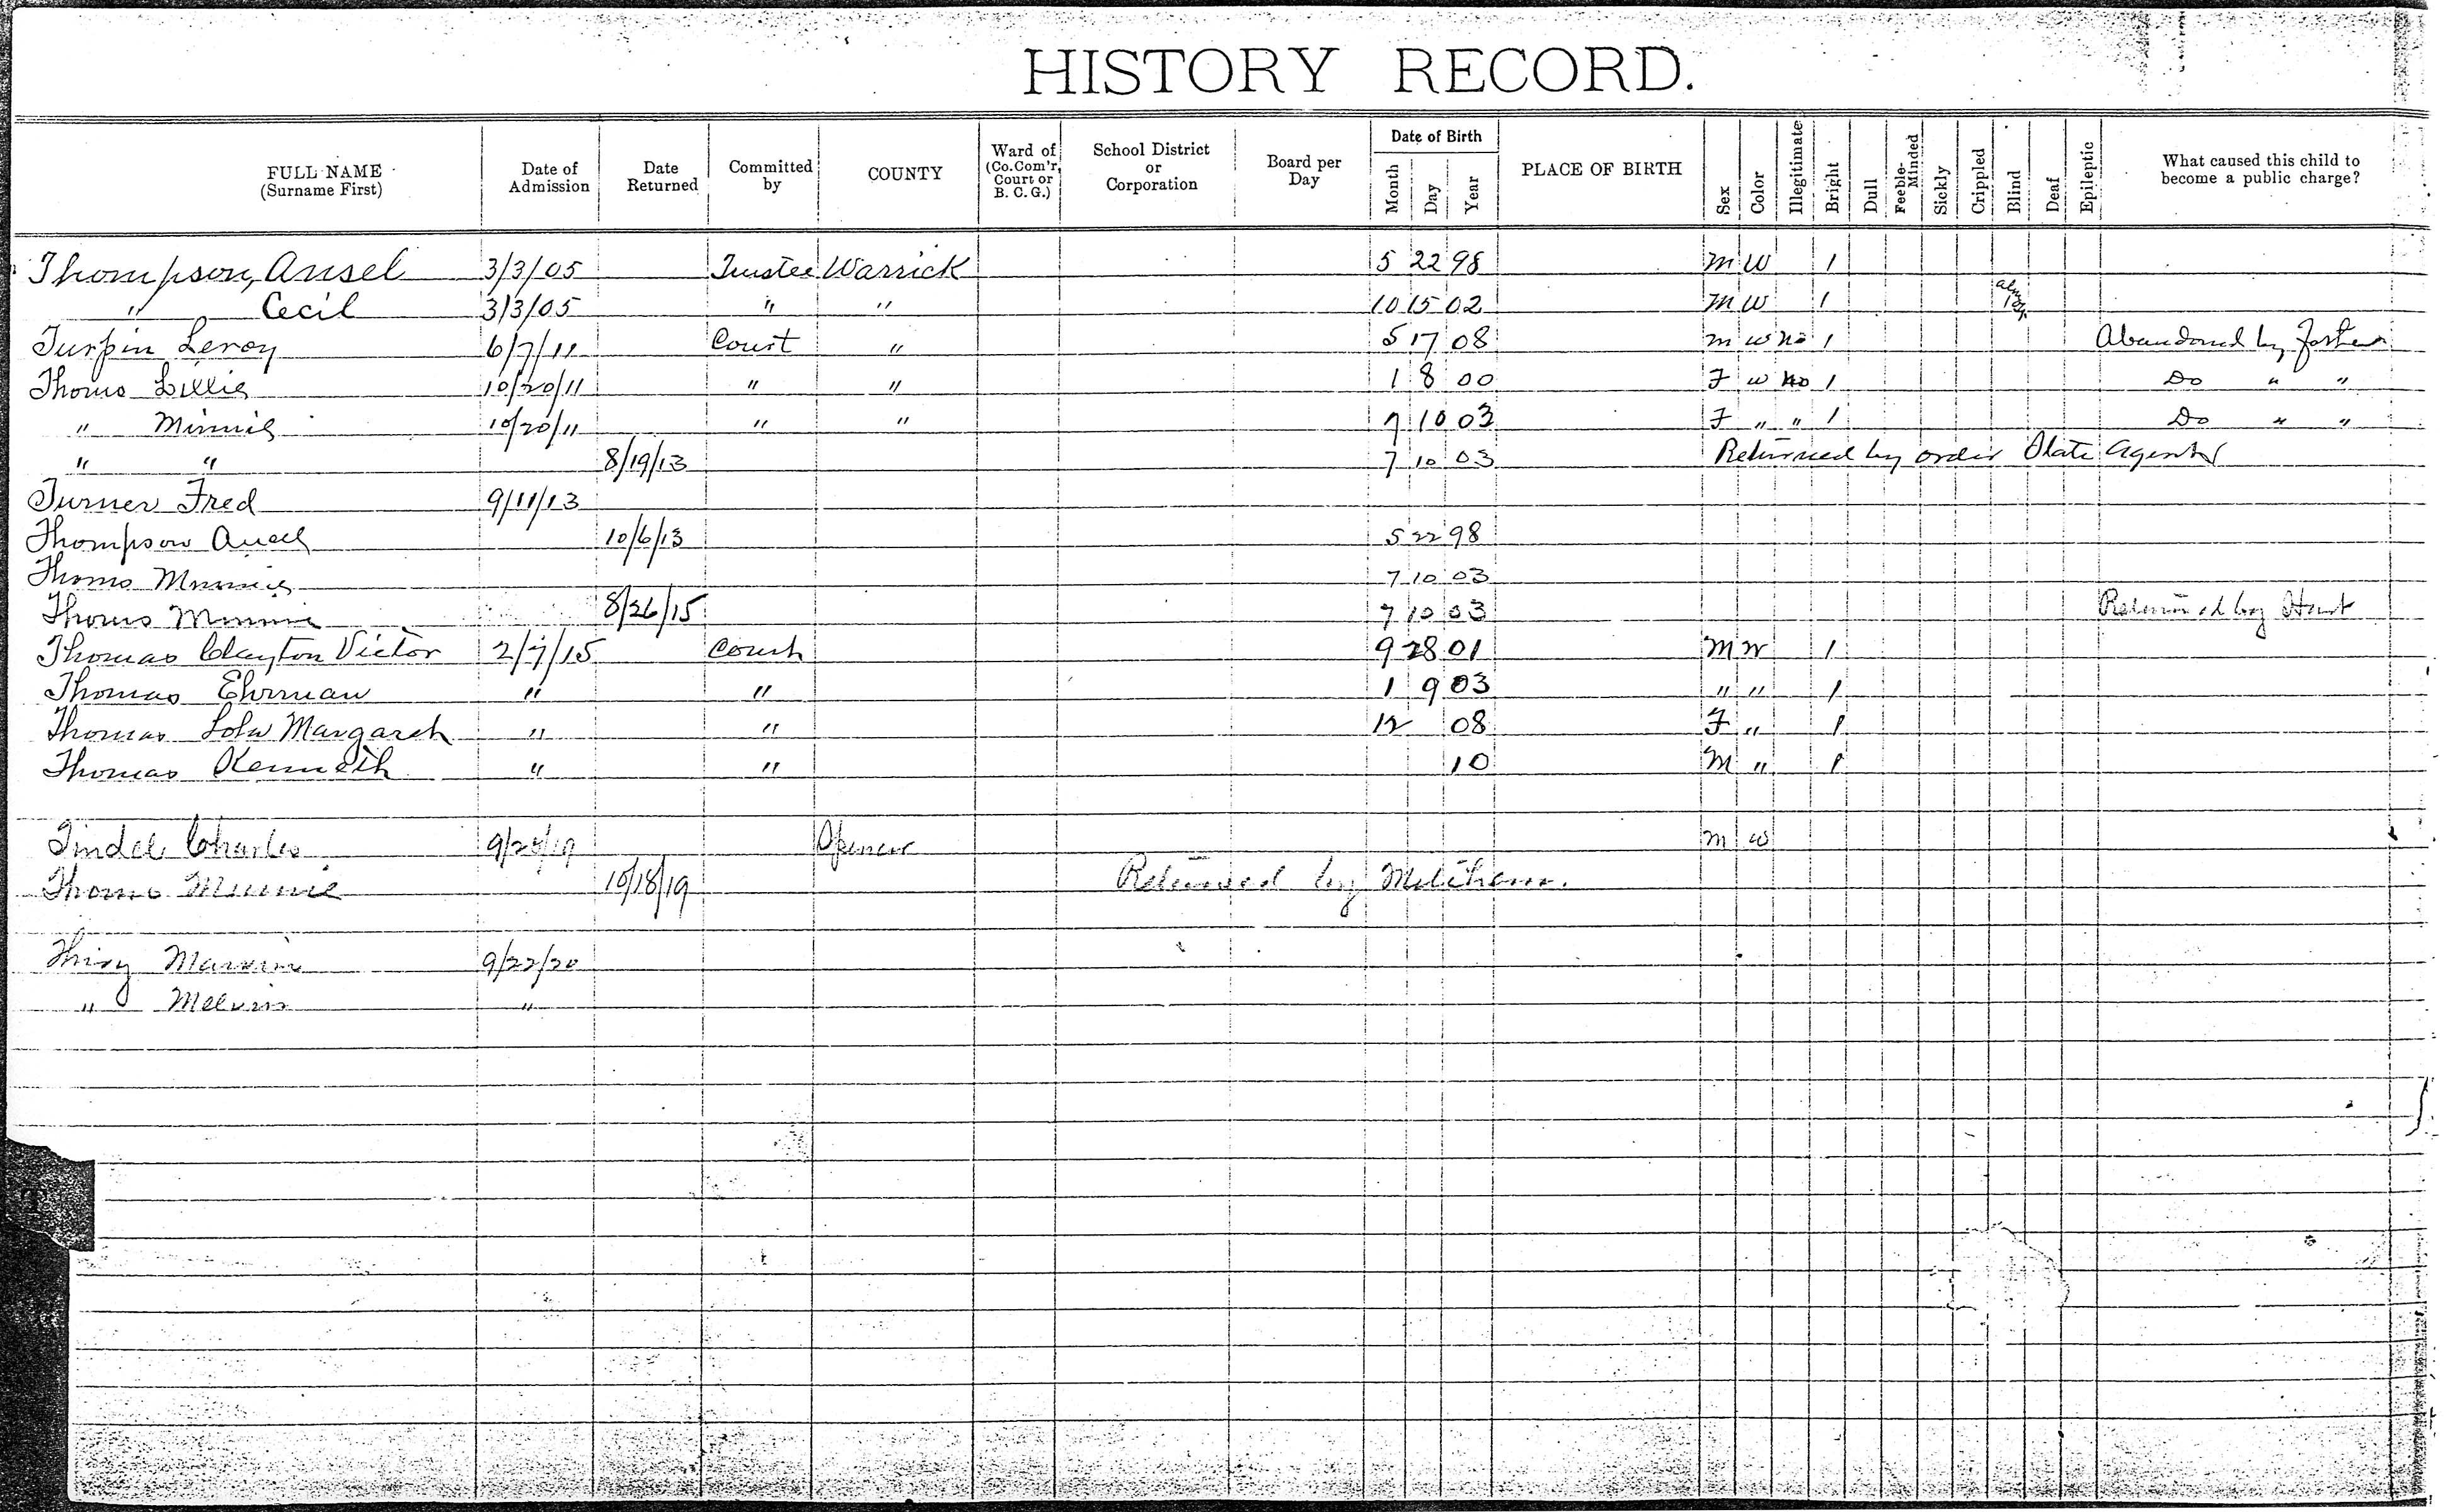 HISTORY RECORD.
FULL NAME (Surname First) Date of Admission Date Returned Committed by COUNTY Ward of (Co. Com'r, Court or B. C. G.) School District or Corporation Board per Day Date of Birth Month Day Year PLACE OF BIRTH Sex Color Illegitimate Bright Dull Feeble-Minded Sickly Crippled Blind Deaf Epileptic What caused this child to become a public charge?
Thompson, Ansel 3/3/05 Trustee Warrick 5 22 98 M W 1
" Cecil 3/3/05 " " 10 15 02 M W 1
Turpin Leroy 6/7/11 Court " 5 17 08 m w no 1 Abandoned by father
Thoms Lillie 10/20/11 " " 1 8 00 F w no 1 Do " "
" Minnie 10/20/11 " " 7 10 03 F " " 1 Do " "
" " 8/19/13 7 10 03 Returned by order State Agents
Turner Fred 9/11/13
Thompson Ansel 10/6/13 5 22 98
Thoms Minnie 7 10 03
Thoms Minnie 8/26/15 7 10 03 Returned by
Thomas Clayton Victor 2/7/15 Court 9 28 01 M W 1
Thomas Ehrman " " 1 9 03 " " 1
Thomas Lola Margaret " " 12 08 F " 1
Thomas Kenneth " " 10 M " 1
Tindel Charles Spencer m w
Thoms Minnie 10/18/19 Returned by
Thiry Marvin 9/22/20
" Melvin "
T